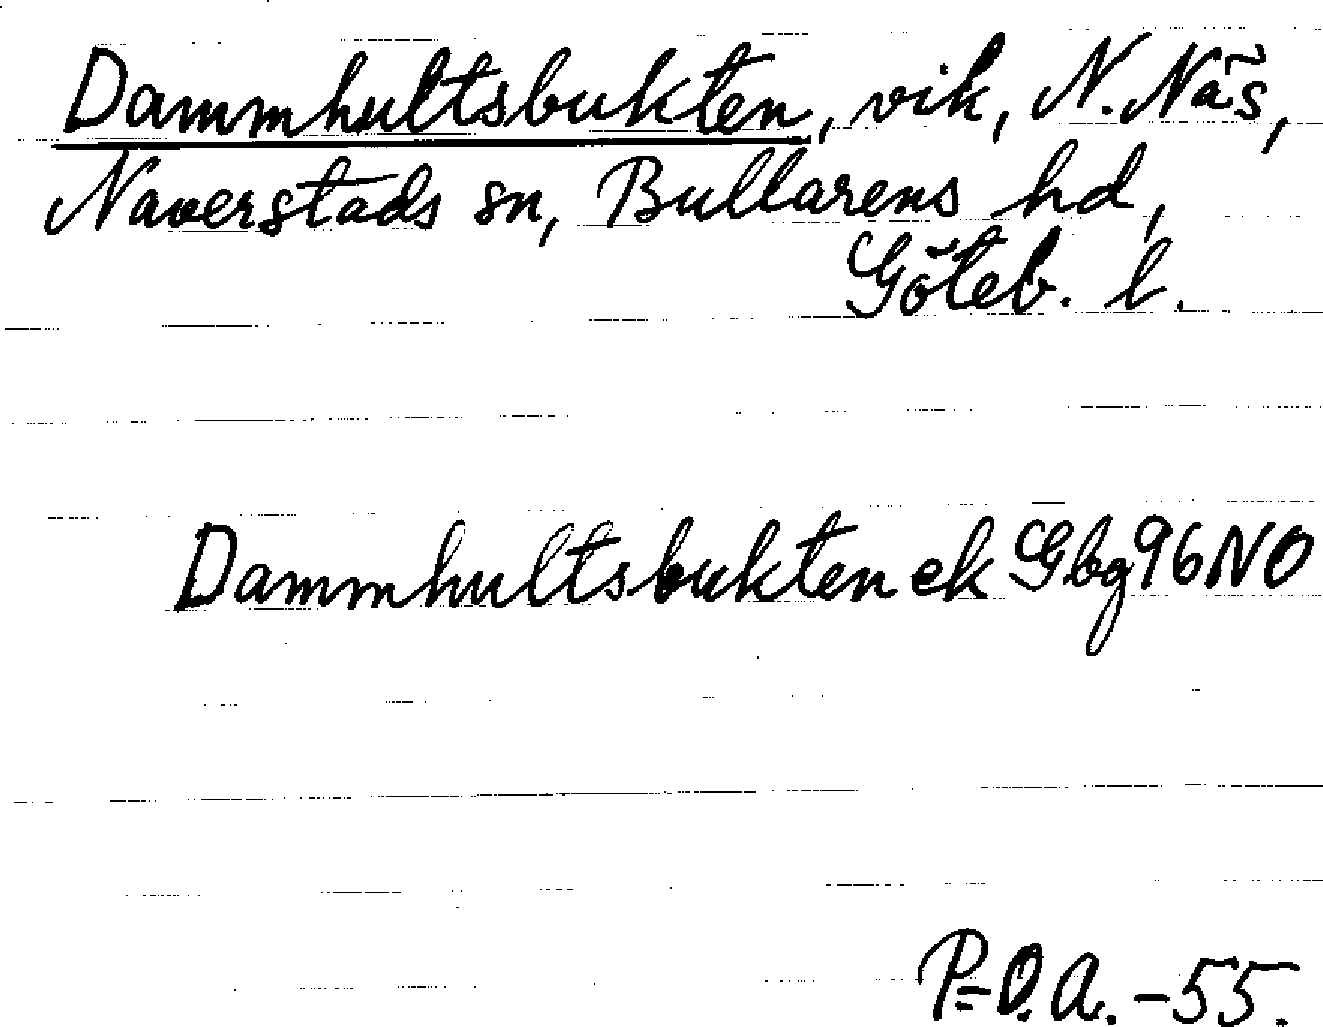 Dammhultsbukten, vik, N. Näs,
Naverstads sn, Bullarens hd,
Göteb. l.
Dammhultsbukten ek Gbg 96 NO
P-O.A. -55.